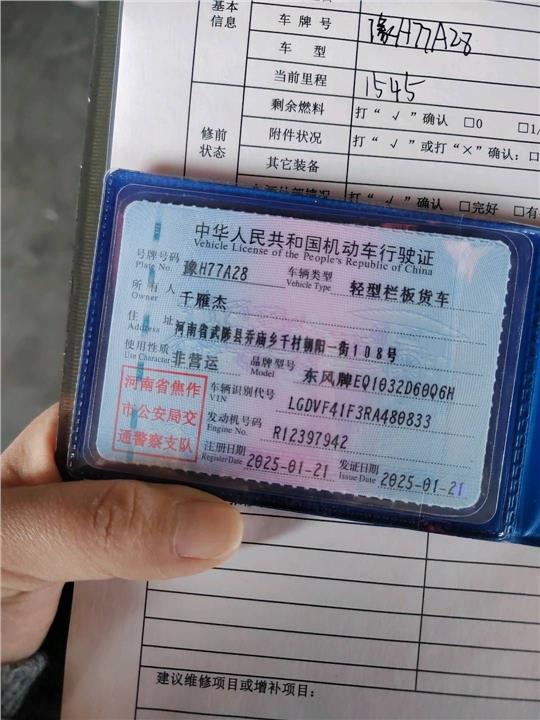 基本
信息
车 牌 号
豫H77A28
车 型
当前里程
1545
修前
状态
剩余燃料
打“ √ ”确认 □0 □1/
附件状况
打“ √ ”或打“×”确认：□
其它装备
打“ √ ”确认 □完好 □有
中华人民共和国机动车行驶证
Vehicle License of the People's Republic of China
号牌号码
Plate No.
豫H77A28
车辆类型
Vehicle Type
轻型栏板货车
所 有 人
Owner
千雁杰
住 址
Address
河南省武陟县乔庙乡千村朝阳一街108号
使用性质
Use Character
非营运
品牌型号
Model
东风牌EQ1032D60Q6H
河南省焦作
市公安局交
通警察支队
车辆识别代号
VIN
LGDVF41F3RA480833
发动机号码
Engine No.
R12397942
注册日期
Register Date
2025-01-21
发证日期
Issue Date
2025-01-21
建议维修项目或增补项目：